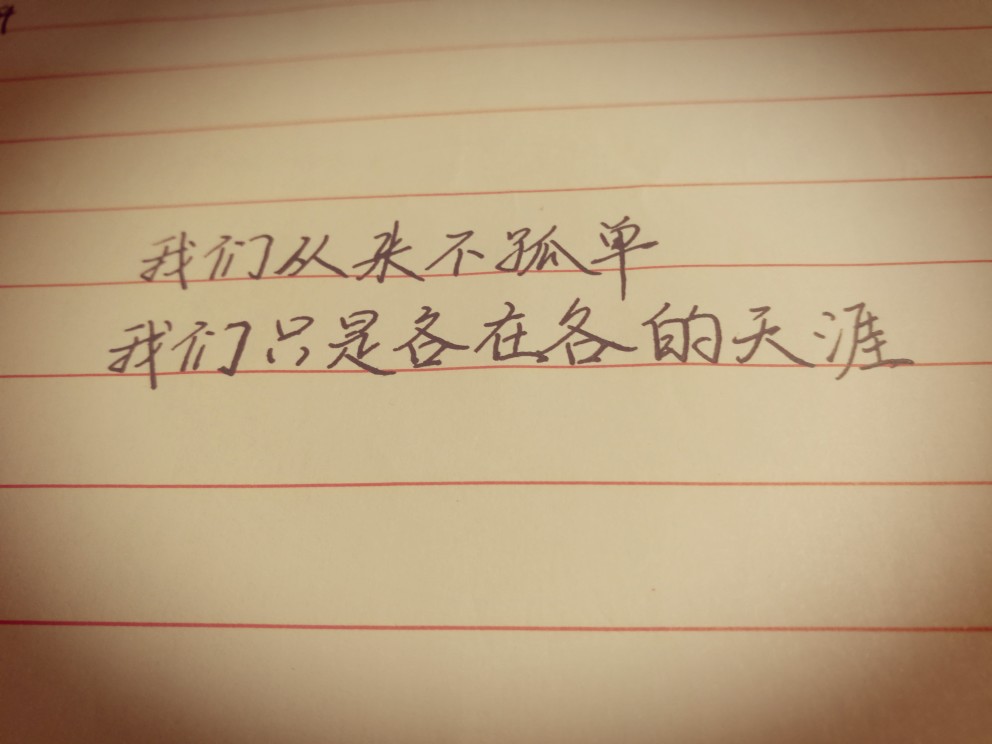 我们从来不孤单
我们只是各在各的天涯